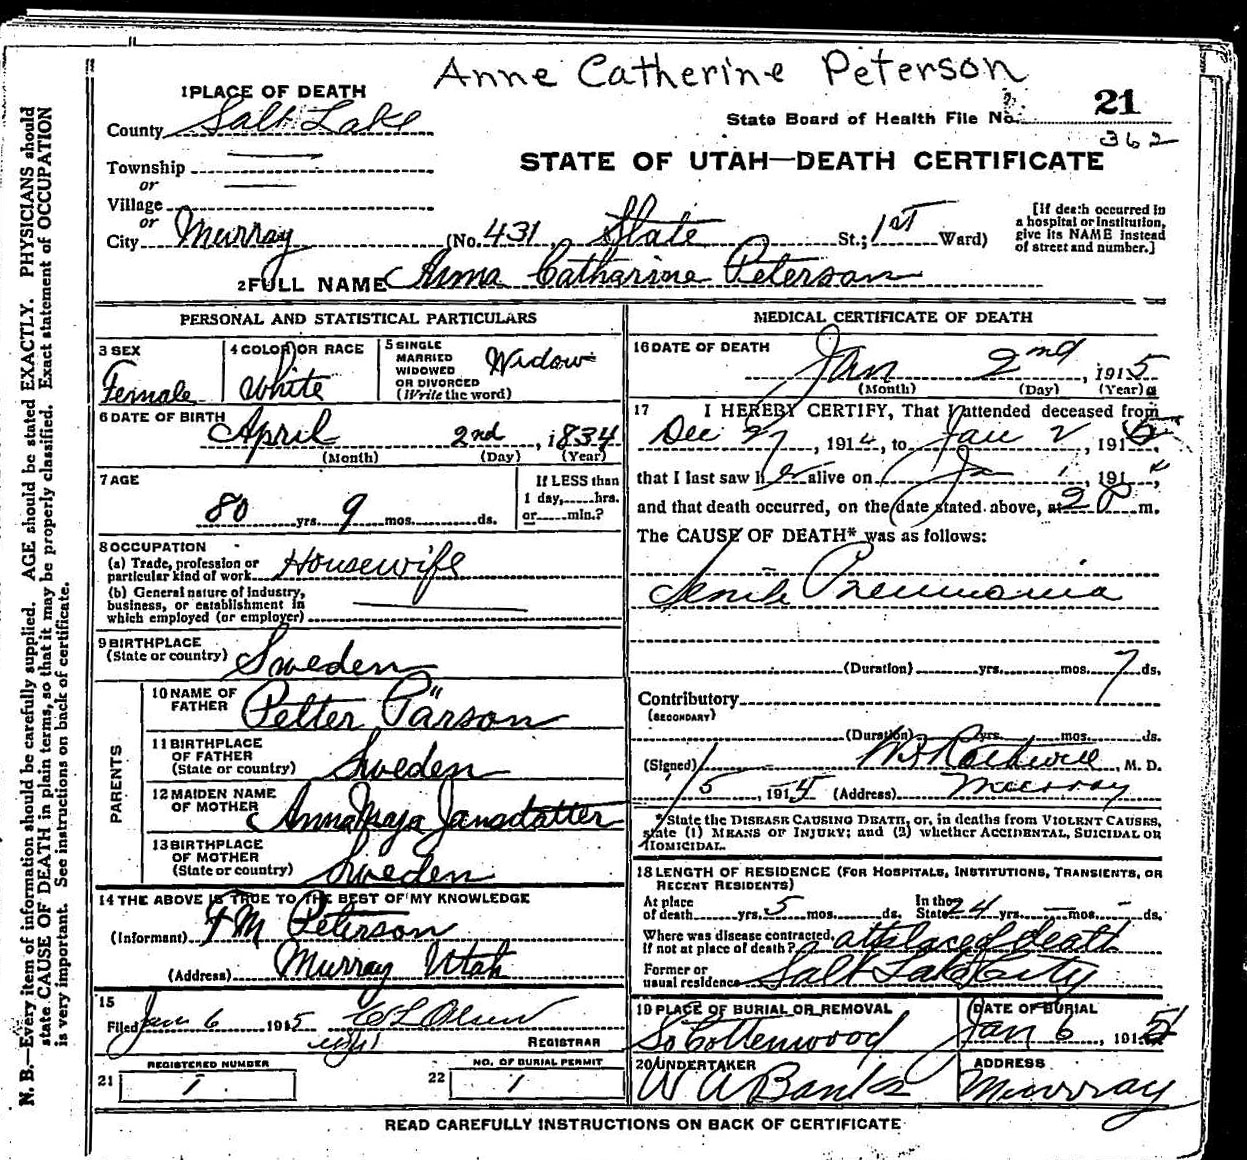 Anne Catherine Peterson
1 PLACE OF DEATH
21
County Salt Lake
State Board of Health File No.
362
Township
STATE OF UTAH—DEATH CERTIFICATE
or
Village
or
City Murray (No. 431 State St.; 1st Ward)
[If death occurred in a hospital or institution, give its NAME instead of street and number.]
2 FULL NAME Anna Catharine Peterson
PERSONAL AND STATISTICAL PARTICULARS
3 SEX
Female
4 COLOR OR RACE
White
5 SINGLE
MARRIED
WIDOWED
OR DIVORCED
(Write the word)
Widow
6 DATE OF BIRTH
April 2nd, 1834
(Month) (Day) (Year)
7 AGE
80 yrs. 9 mos. ds.
If LESS than
1 day, hrs.
or min.?
8 OCCUPATION
(a) Trade, profession or
particular kind of work Housewife
(b) General nature of industry,
business, or establishment in
which employed (or employer)
9 BIRTHPLACE
(State or country) Sweden
PARENTS
10 NAME OF
FATHER Petter Parson
11 BIRTHPLACE
OF FATHER
(State or country) Sweden
12 MAIDEN NAME
OF MOTHER Anna Maja Jansdatter
13 BIRTHPLACE
OF MOTHER
(State or country) Sweden
14 THE ABOVE IS TRUE TO THE BEST OF MY KNOWLEDGE
(Informant) F M Peterson
(Address) Murray Utah
15
Filed Jan 6 1915
REGISTRAR
REGISTERED NUMBER
21 1
NO. OF BURIAL PERMIT
22 1
MEDICAL CERTIFICATE OF DEATH
16 DATE OF DEATH
Jan 2nd, 1915
(Month) (Day) (Year)
17 I HEREBY CERTIFY, That I attended deceased from
Dec 27, 1914, to Jan 2, 1915,
that I last saw her alive on Ja 1, 191
and that death occurred, on the date stated above, at 2 P m.
The CAUSE OF DEATH* was as follows:
Senile Pneumonia
(Duration) yrs. mos. 7 ds.
Contributory
(SECONDARY)
(Duration) yrs. mos. ds.
(Signed) Rothwell, M. D.
1/5, 1914 (Address) Murray
*State the DISEASE CAUSING DEATH, or, in deaths from VIOLENT CAUSES,
state (1) MEANS OF INJURY; and (2) whether ACCIDENTAL, SUICIDAL OR
HOMICIDAL.
18 LENGTH OF RESIDENCE (FOR HOSPITALS, INSTITUTIONS, TRANSIENTS, OR
RECENT RESIDENTS)
At place of death yrs. 5 mos. ds. In the State 24 yrs. — mos. - ds.
Where was disease contracted,
if not at place of death? at place of death
Former or
usual residence Salt Lake City
19 PLACE OF BURIAL OR REMOVAL
So Cottenwood
DATE OF BURIAL
Jan 6, 1915
20 UNDERTAKER
W A Banks
ADDRESS
Murray
READ CAREFULLY INSTRUCTIONS ON BACK OF CERTIFICATE
N. B.—Every item of information should be carefully supplied. AGE should be stated EXACTLY. PHYSICIANS should
state CAUSE OF DEATH in plain terms, so that it may be properly classified. Exact statement of OCCUPATION
is very important. See instructions on back of certificate.